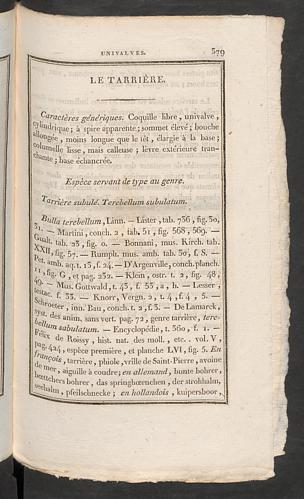 UNIVALVES. 579
LE TARRIÈRE.
Caractères génériques. Coquille libre, univalve,
cylindrique; à spire apparente; sommet élevé; bouche
allongée, moins longue que le têt, élargie à la base;
columelle lisse, mais calleuse; lèvre extérieure tran-
chante; base échancrée.
Espèce servant de type au genre.
Tarrière subulé. Terebellum subulatum.
Bulla terebellum, Linn. — Lister, tab. 736, fig. 30,
31. — Martini, conch. 2, tab. 51, fig. 568, 569. —
Gualt. tab. 23, fig. o. — Bonnani, mus. Kirch. tab.
XXII, fig. 57. — Rumph. mus. amb. tab. 30, f. S. —
Pet. amb. aq. t. 13, f. 24. — D'Argenville, conch. planch.
11, fig. G, et pag. 232. — Klein, ostr. t. 2, fig. 48,
49. — Mus. Gottwald, t. 43, f. 33, a, b. — Lesser,
testac. f. 33. — Knorr, Vergn. 2, t. 4, f. 4, 5. —
Schroeter, inn. Bau, conch. t. 2, f. 3. — De Lamarck,
syst. des anim. sans vert. pag. 72, genre tarrière, tere-
bellum subulatum. — Encyclopédie, t. 360, f. 1. —
Félix de Roissy, hist. nat. des moll., etc. vol. V,
pag. 424, espèce première, et planche LVI, fig. 5. En
françois, tarrière, phiole, ville de Saint-Pierre, avoine
de mer, aiguille à coudre; en allemand, bunte bohrer,
boettchers bohrer, das springhœrnchen, der strohhalm,
seehalm, pfeilschnecke; en hollandois, kuipersboor,